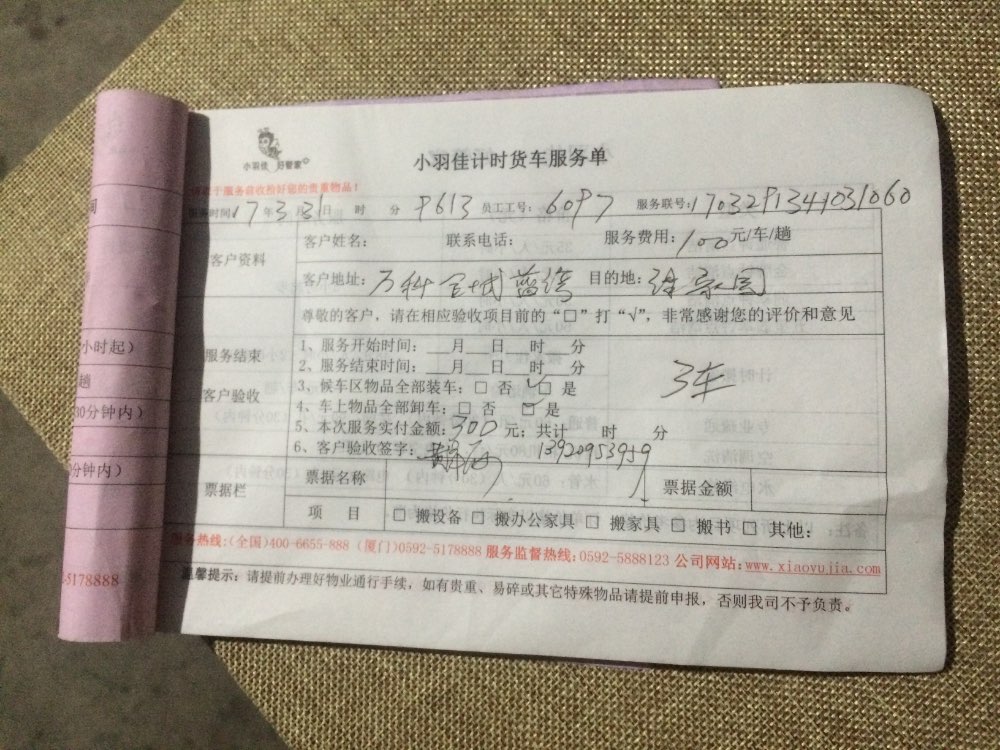 小羽佳 好管家
小羽佳计时货车服务单
请于服务前收拾好您的贵重物品！
服务时间17年3月31日 时 分 P613 员工工号：6097 服务联号：17032913441031060
客户资料
客户姓名： 联系电话： 服务费用：100元/车/趟
客户地址：万科金域蓝湾 目的地：
尊敬的客户，请在相应验收项目前的“□”打“√”，非常感谢您的评价和意见
服务结束
客户验收
1、服务开始时间：___月___日___时___分
2、服务结束时间：___月___日___时___分
3、候车区物品全部装车：□ 否 ☑ 是
4、车上物品全部卸车：□ 否 ☑ 是
5、本次服务实付金额：300元；共计 时 分
6、客户验收签字： 13920953959
3车
票据栏
票据名称 票据金额
项 目 □ 搬设备 □ 搬办公家具 □ 搬家具 □ 搬书 □ 其他：
服务热线：(全国)400-6655-888 (厦门)0592-5178888 服务监督热线：0592-5888123 公司网站：www.xiaoyujia.com
温馨提示：请提前办理好物业通行手续，如有贵重、易碎或其它特殊物品请提前申报，否则我司不予负责。
小时起）
趟
30分钟内）
分钟内）
-5178888